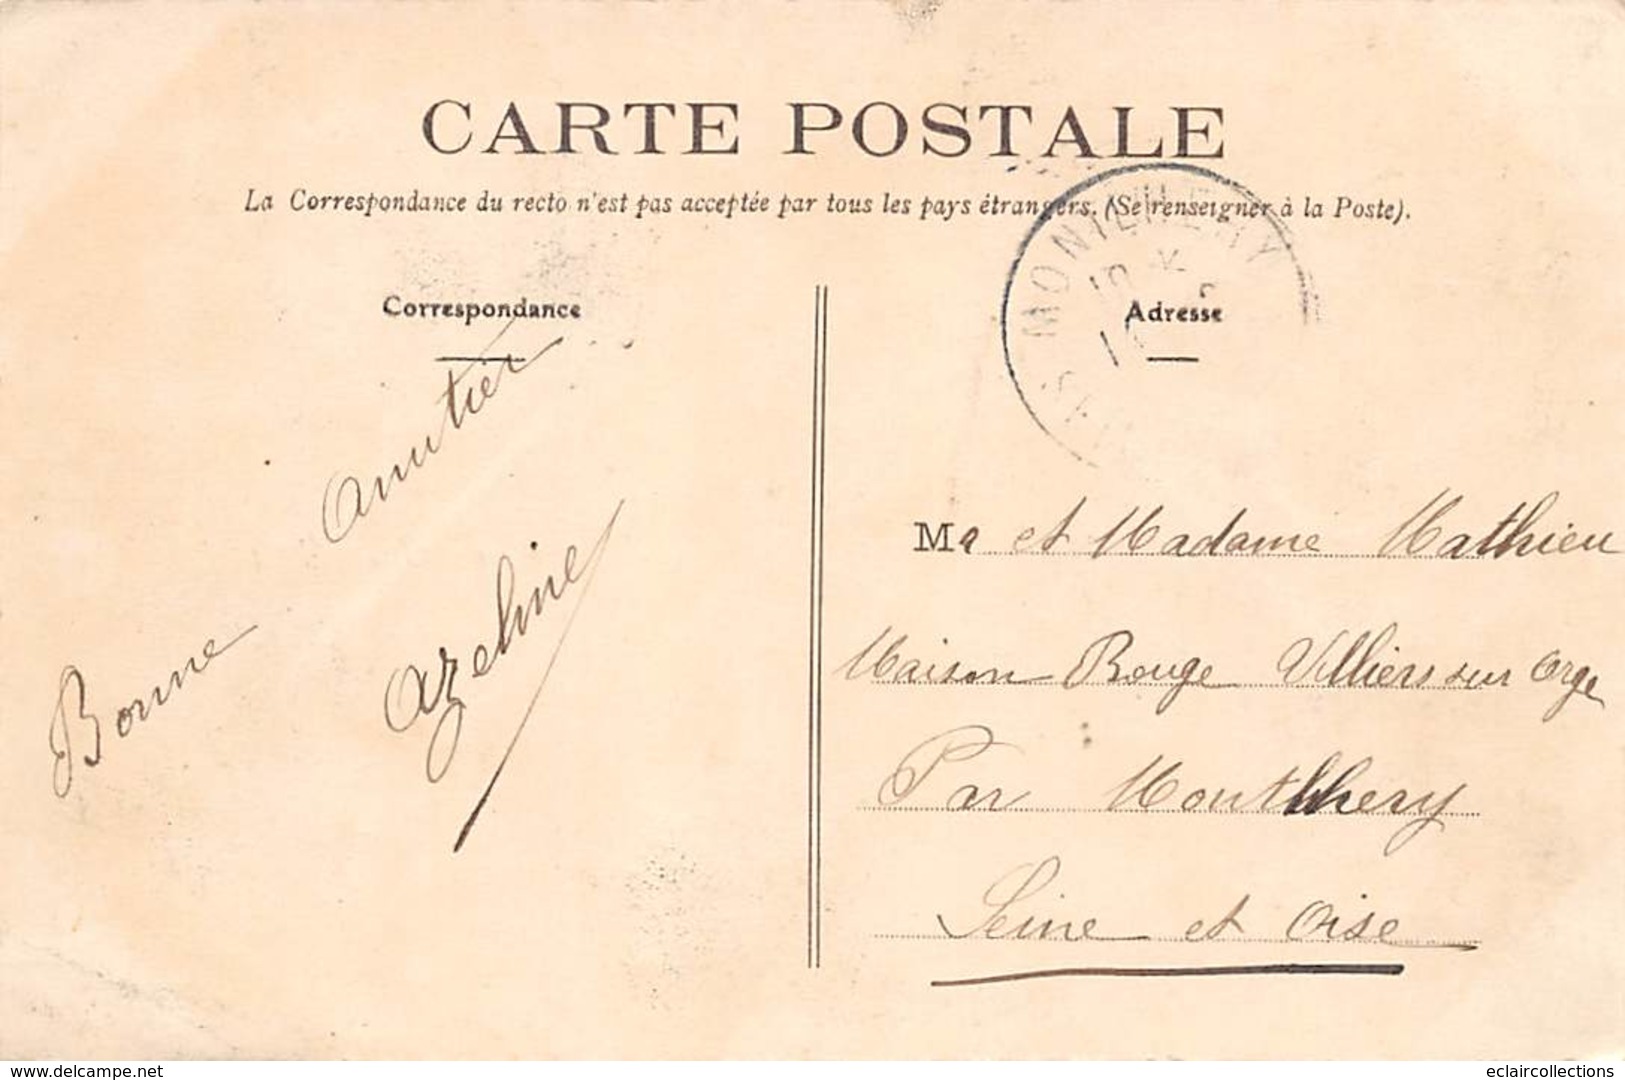 CARTE POSTALE
La Correspondance du recto n'est pas acceptée par tous les pays étrangers. (Se renseigner à la Poste).
Correspondance
Bonne Amitier
Azeline
Adresse
MONTLHERY
Mr et Madame Mathieu
Maison Rouge Villiers sur Orge
Par Montlhery
Seine et Oise
www.delcampe.net
eclaircollections